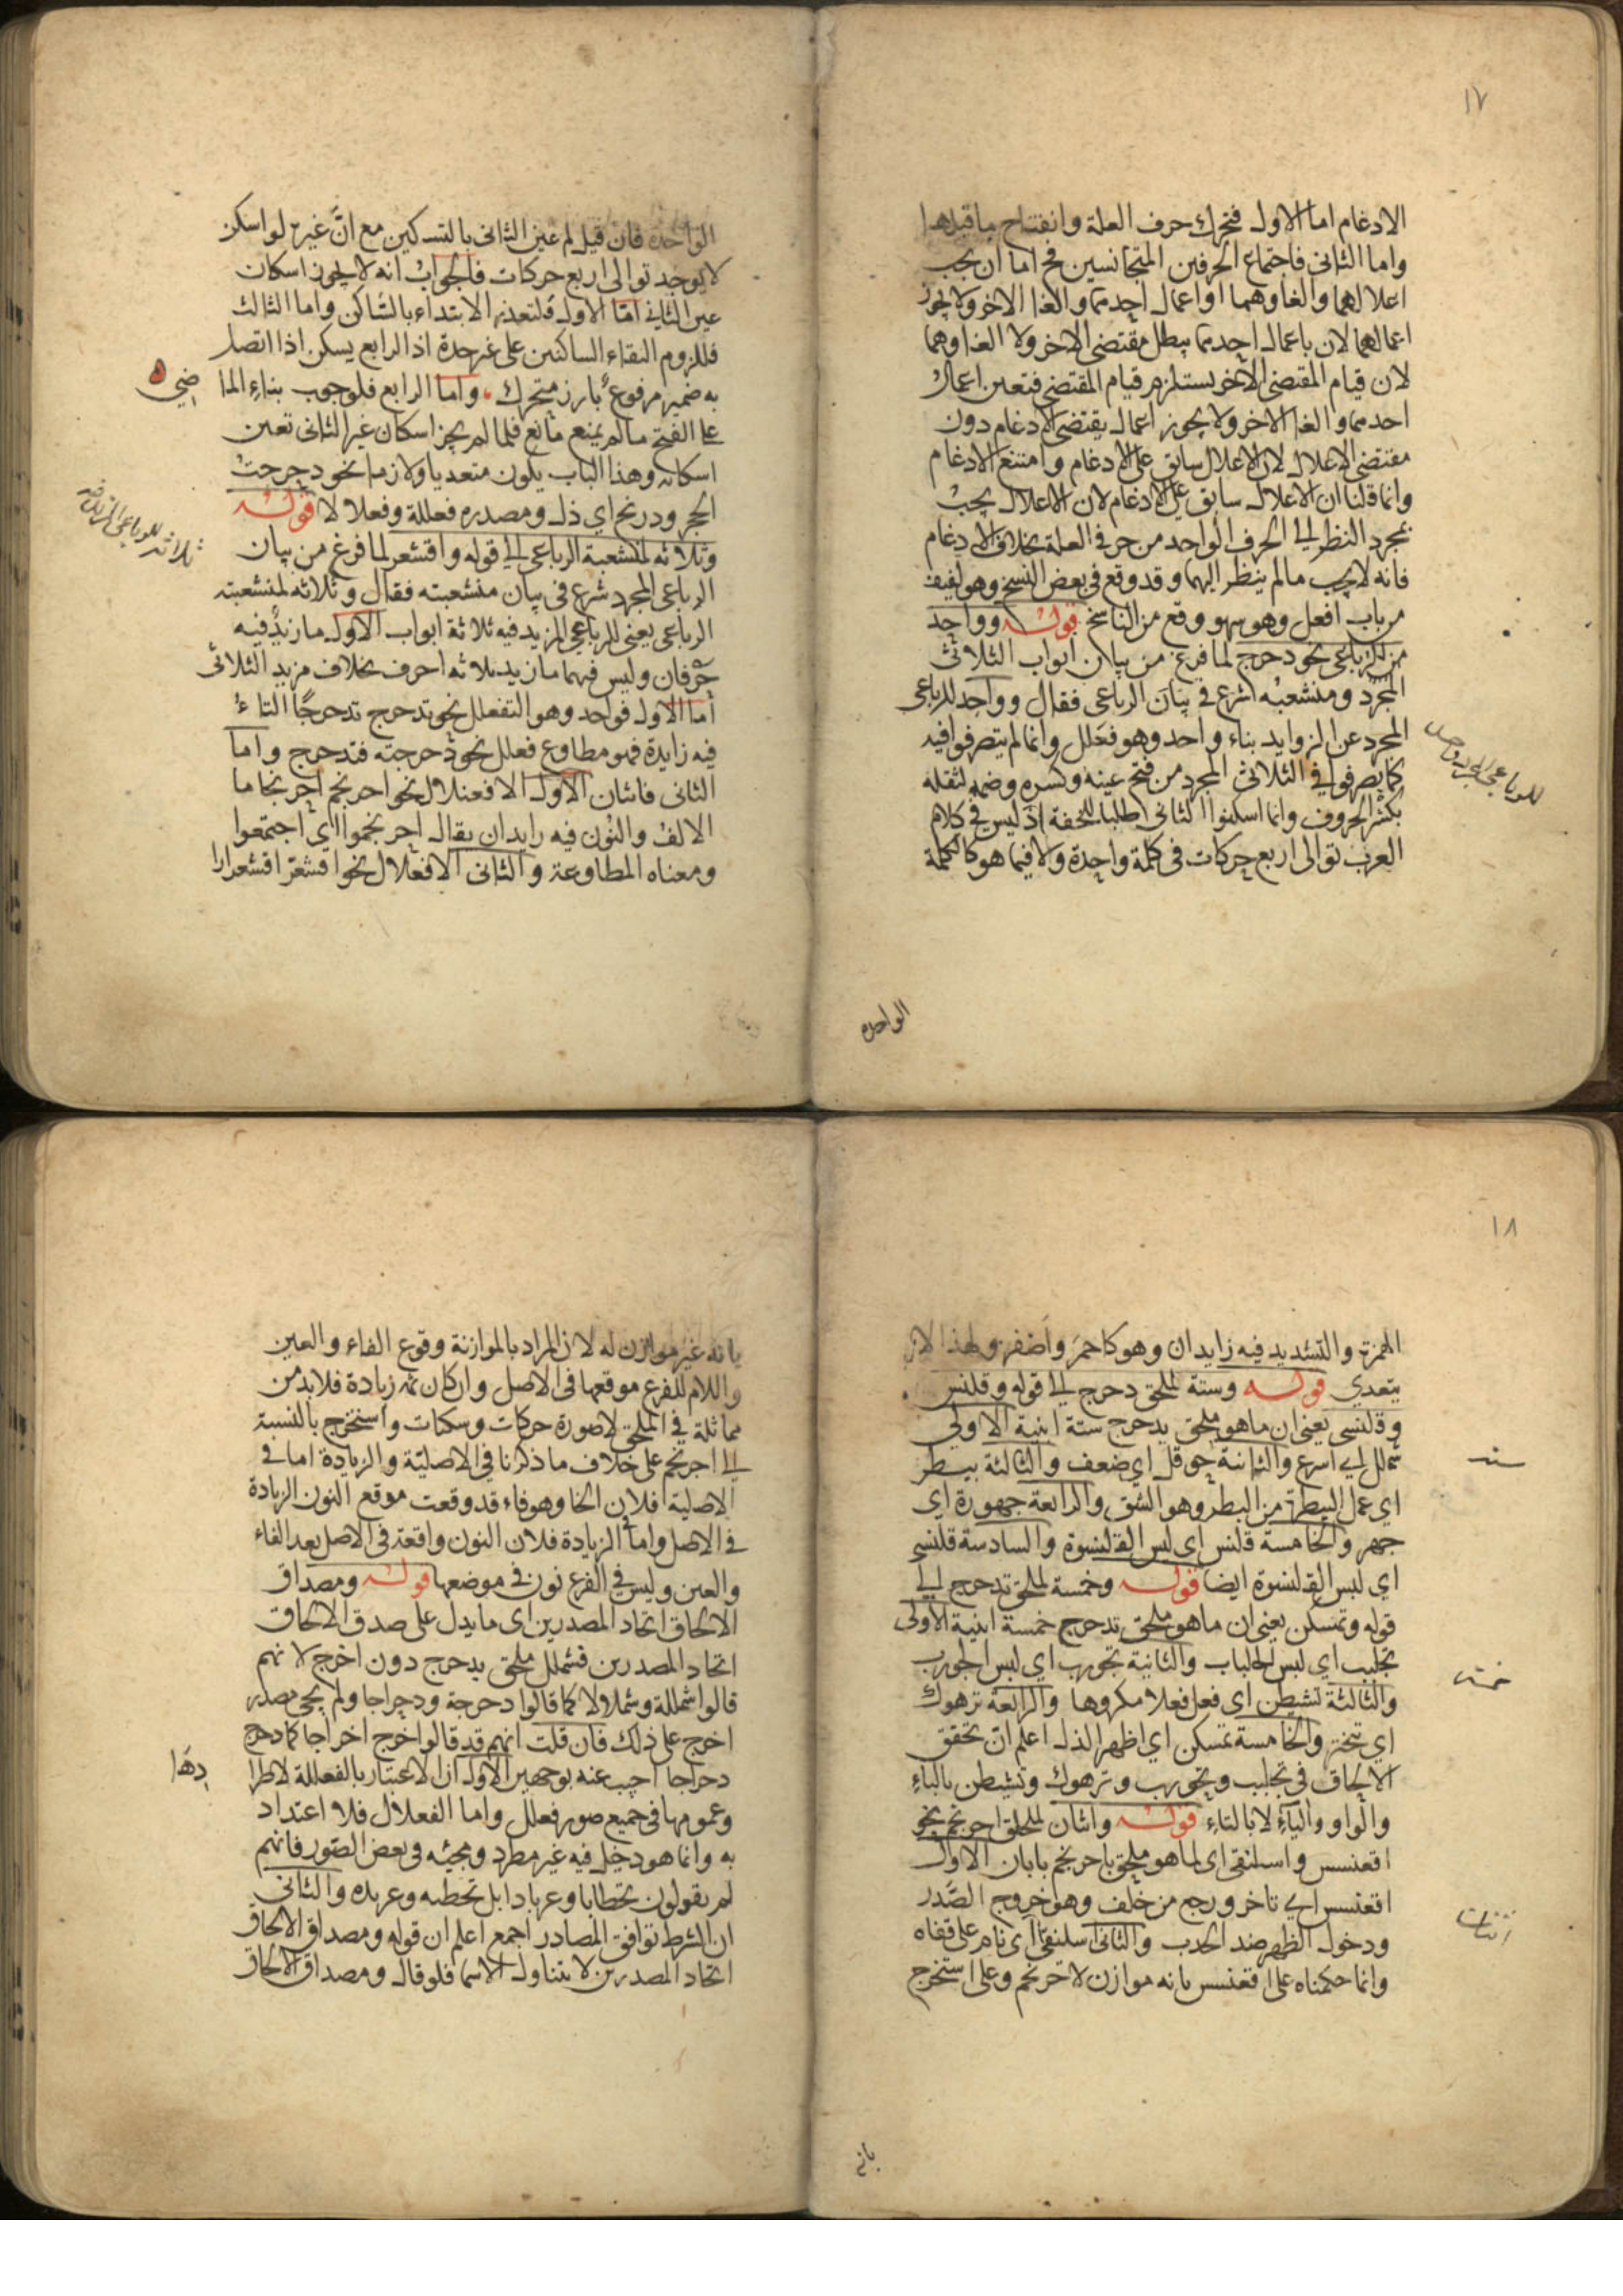 ١٧
الادغام اما الاول فتحرك حرف العلة وانفتاح ما قبلها
واما الثانى فاجتماع الحرفين المتجانسين فح اما ان يجب
اعلالهما والغاوهما او اعمال احدهما والغا الاخر ولا يجوز
اعمالهما لان باعمال احدهما يبطل مقتضى الاخر ولا الغاوهما
لان قيام المقتضى الاخر يستلزم قيام المقتضى فتعين اعمال
احدهما والغا الاخر ولا يجوز اعمال يقتضى الادغام دون
مقتضى الاعلال لان الاعلال سابق على الادغام وامتنع الادغام
وانما قلنا ان الاعلال سابق على الادغام لان الاعلال يجب
بمجرد النظر الى الحرف الواحد من حرفى العلة بخلاف الادغام
فانه لا يجب مالم ينظر اليهما وقد وقع فى بعض النسخ وهو لفيف
من باب افعل وهو سهو ووقع من الناسخ قوله وواحد
من الرباعى نحو دحرج لما فرغ من بيان ابواب الثلاثى
المجرد ومنشعبه شرع فى بيان الرباعى فقال وواحد للرباعى
المجرد عن الزوايد بناء واحد وهو فعلل وانما لم يتصرفوا فيه
كما يصرفوا فى الثلاثى المجرد من فتح عينه وكسره وضمه لثقله
بكثر الحروف وانما اسكنوا الثانى طلبا للخفة اذ ليس فى كلام
العرب توالى اربع حركات فى كلمة واحدة ولا فيما هو كالكلمة
للرباعى المجرد واحد
الواحدة
الواحدة فان قيل لم عين الثانى بالتسكين مع ان غيره لو اسكن
لا يوجد توالى اربع حركات فالجواب انه لا يجوز اسكان
عين الثانى اما الاول فلتعذر الابتداء بالساكن واما الثالث
فللزوم التقاء الساكنين على غير حدة اذ الرابع يسكن اذا اتصل
به ضمير مرفوع بارز متحرك واما الرابع فلوجوب بناء الما
ضى
على الفتح مالم يمنع مانع فلما لم يجز اسكان غير الثانى تعين
اسكانه وهذا الباب يكون متعديا ولازما نحو دحرجت
الحجر ودربخ اى ذل ومصدره فعللة وفعلالا قوله
وثلاثه لمنشعبة الرباعى الى قوله واقشعر لما فرغ من بيان
الرباعى المجرد شرع فى بيان منشعبته فقال وثلاثه لمنشعبته
الرباعى يعنى للرباعى المزيد فيه ثلاثة ابواب الاول ما زيد فيه
حرفان وليس فيهما ما زيد ثلاثه احرف بخلاف مزيد الثلاثى
اما الاول فواحد وهو التفعلل نحو تدحرج تدحرجا التاء
فيه زايدة فهو مطاوع فعلل نحو دحرجته فتدحرج واما
الثانى فاثنان الاول الافعنلال نحو احرنجم احرنجاما
الالف والنون فيه زايدان يقال احرنجموا اى اجتمعوا
ومعناه المطاوعة والثانى الافعلال نحو اقشعر اقشعرارا
١٨
الهمزة والتشديد فيه زايدان وهو كاحمر واصفر ولهذا لا
يتعدى قوله وستة لملحق دحرج الى قوله وقلنس
وقلنسى يعنى ان ما هو ملحق بدحرج ستة ابنية الاولى
شملل اى اسرع والثانية حوقل اى ضعف والثالثة بيطر
اى عمل البيطرة من البطر وهو الشق والرابعة جهورة اى
جهر والخامسة قلنس اى لبس القلنسوة والسادسة قلنسى
اى لبس القلنسوة ايضا قوله وخمسة لملحق تدحرج الى
قوله وتمسكن يعنى ان ما هو ملحق تدحرج خمسة ابنية الاولى
تجلبب اى لبس الجلباب والثانية تجورب اى لبس الجورب
والثالثة تشيطن اى فعل فعلا مكروها والرابعة ترهوك
اى تبختر والخامسة تمسكن اى اظهر الذل اعلم ان تحقق
الالحاق فى تجلبب وتجورب وترهوك وتشيطن بالباء
والواو والياء لا بالتاء قوله واثنان لملحق احرنجم نحو
اقعنسس واسلنقى اى لما هو ملحق باحرنجم بابان الاول
اقعنسس اى تاخر ورجع من خلف وهو خروج الصدر
ودخول الظهر ضد الحدب والثانى اسلنقى اى نام على قفاه
وانما حكمناه على اقعنسس بانه موازن لاحرنجم وعلى استخرج
ستة
خمسة
اثنان
بانه
بانه غير موازن له لان المراد بالموازنة وقوع الفاء والعين
واللام للفرع موقعها فى الاصل وان كان ثمه زيادة فلابد من
مماثلة فى الملحق لا صورة حركات وسكنات واستخرج بالنسبة
الى احرنجم على خلاف ما ذكرنا فى الاصلية والزيادة اما فى
الاصلية فلان الخا وهو فاء قد وقعت موقع النون الزيادة
فى الاصل واما فى الزيادة فلان النون واقعة فى الاصل بعد الفاء
والعين وليس فى الفرع نون فى موضعها قوله ومصداق
الالحاق اتحاد المصدرين اى ما يدل على صدق الالحاق
اتحاد المصدرين فشملل ملحق بدحرج دون اخرج لانهم
قالوا شمللة وشملالا كما قالوا دحرجة ودحراجا ولم يجئ مصدر
اخرج على ذلك فان قلت انهم قد قالوا اخرج اخراجا كما دحرج
دحراجا اجيب عنه بوجهين الاول ان الاعتبار بالفعللة لاطرا
دها
وعمومها فى جميع صور فعلل واما الفعلال فلا اعتداد
به وانما هو دخيل فيه غير مطرد ومجيئه فى بعض الصور فانهم
لم يقولون تحطابا وعربادا بل تحطبه وعربده والثانى
ان الشرط توافق المصادر اجمع اعلم ان قوله ومصداق الالحاق
اتحاد المصدرين لا يتناول الاسما فلو قال ومصداق الالحاق